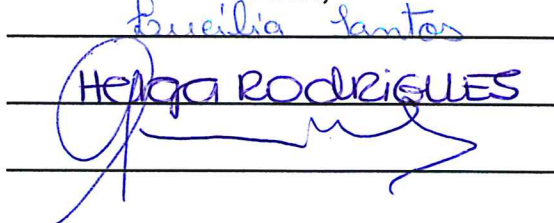 Lucília Santos
Helga RODRIGUES